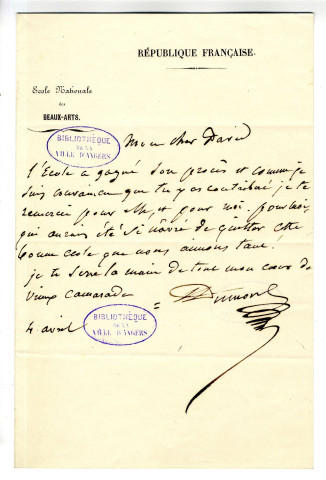 RÉPUBLIQUE FRANÇAISE.
Ecole Nationale
des
BEAUX-ARTS.
BIBLIOTHÈQUE
DE LA
VILLE D'ANGERS
Mon cher David
l'Ecole a gagné son procès et comme je
suis convaincu que tu y as contribué je te
remercie pour elle, et pour moi pour moi
qui aurais été si navré de quitter cette
bonne ecole que nous aimons tant!
je te serre la main de tout mon coeur de
vieux camarade =
4 avril
BIBLIOTHÈQUE
DE LA
VILLE D'ANGERS